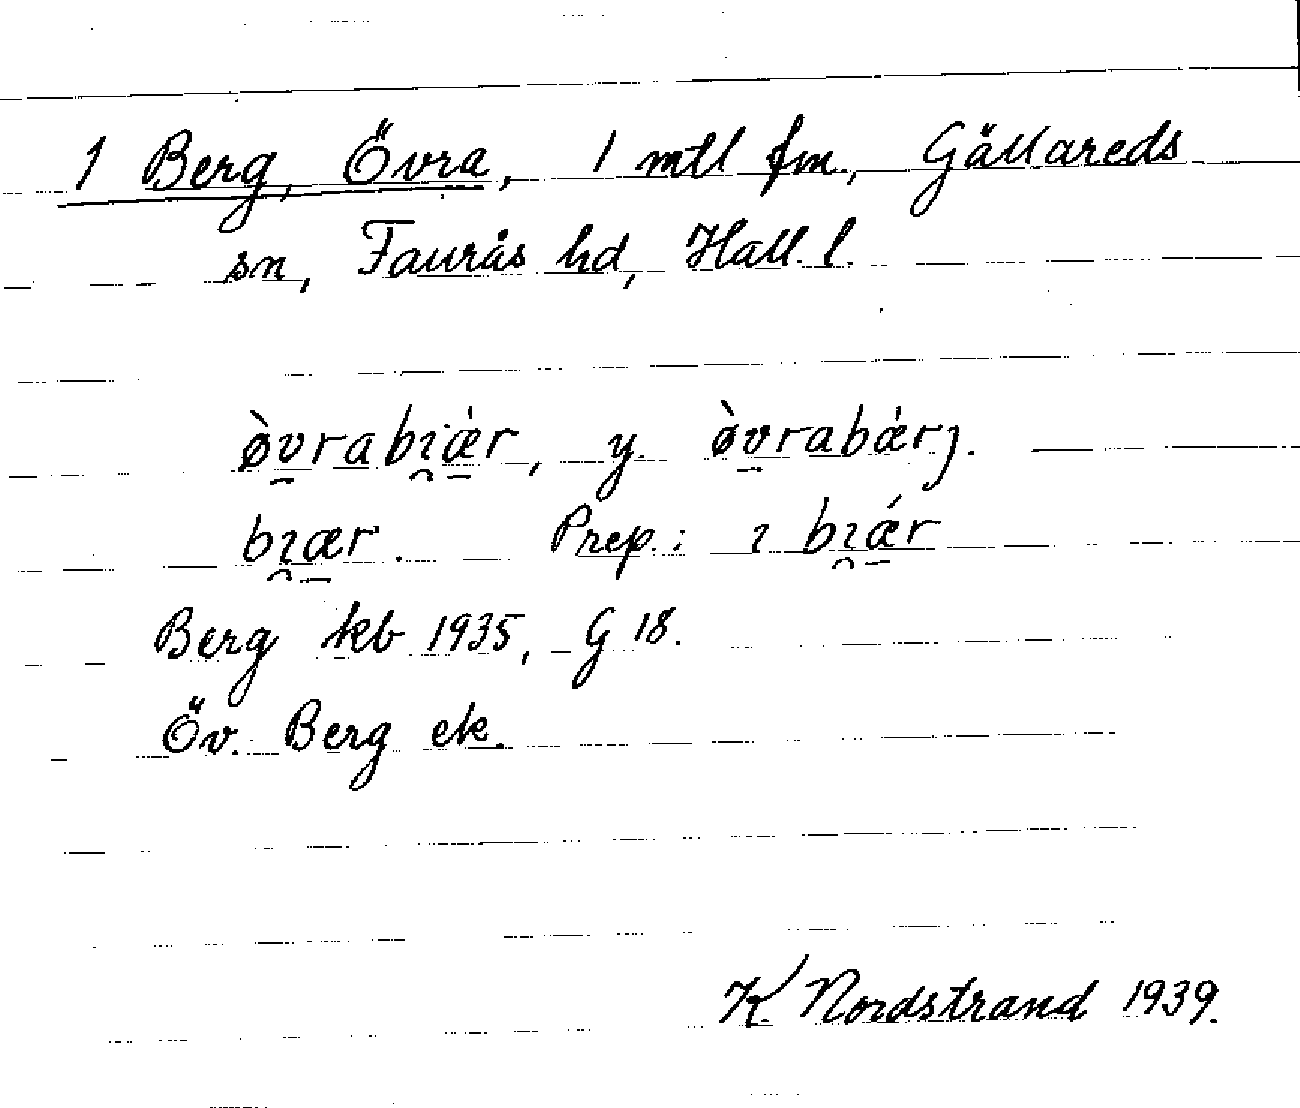 1 Berg, Övra, 1 mtl fm, Gällareds
sn, Faurås hd, Hall. l.
ø̀v̠rabı̯æ̠̀r, y. ø̀v̠rabæ̀rȷ.
bı̯æ̠r. Prep.: ı bı̯ǽ̠r
Berg kb 1935, G 18.
Öv. Berg ek.
K. Nordstrand 1939.